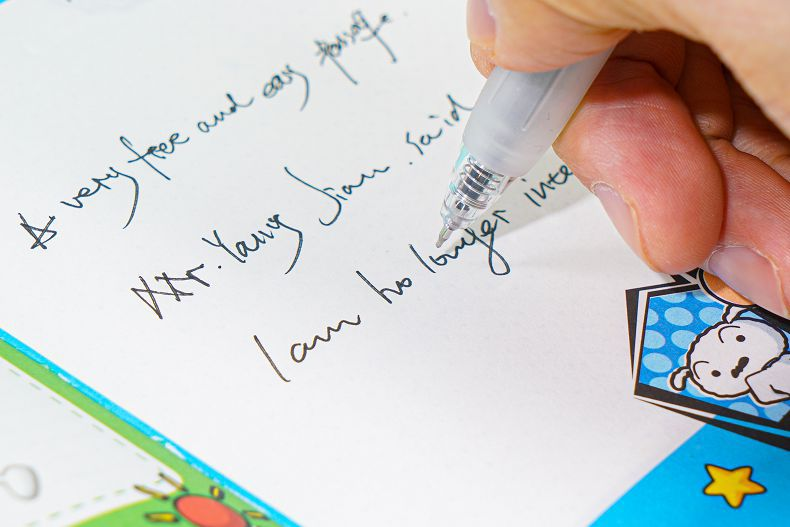 A very free and easy passage.
Mr. Yang Jian. said
I am no longer inte